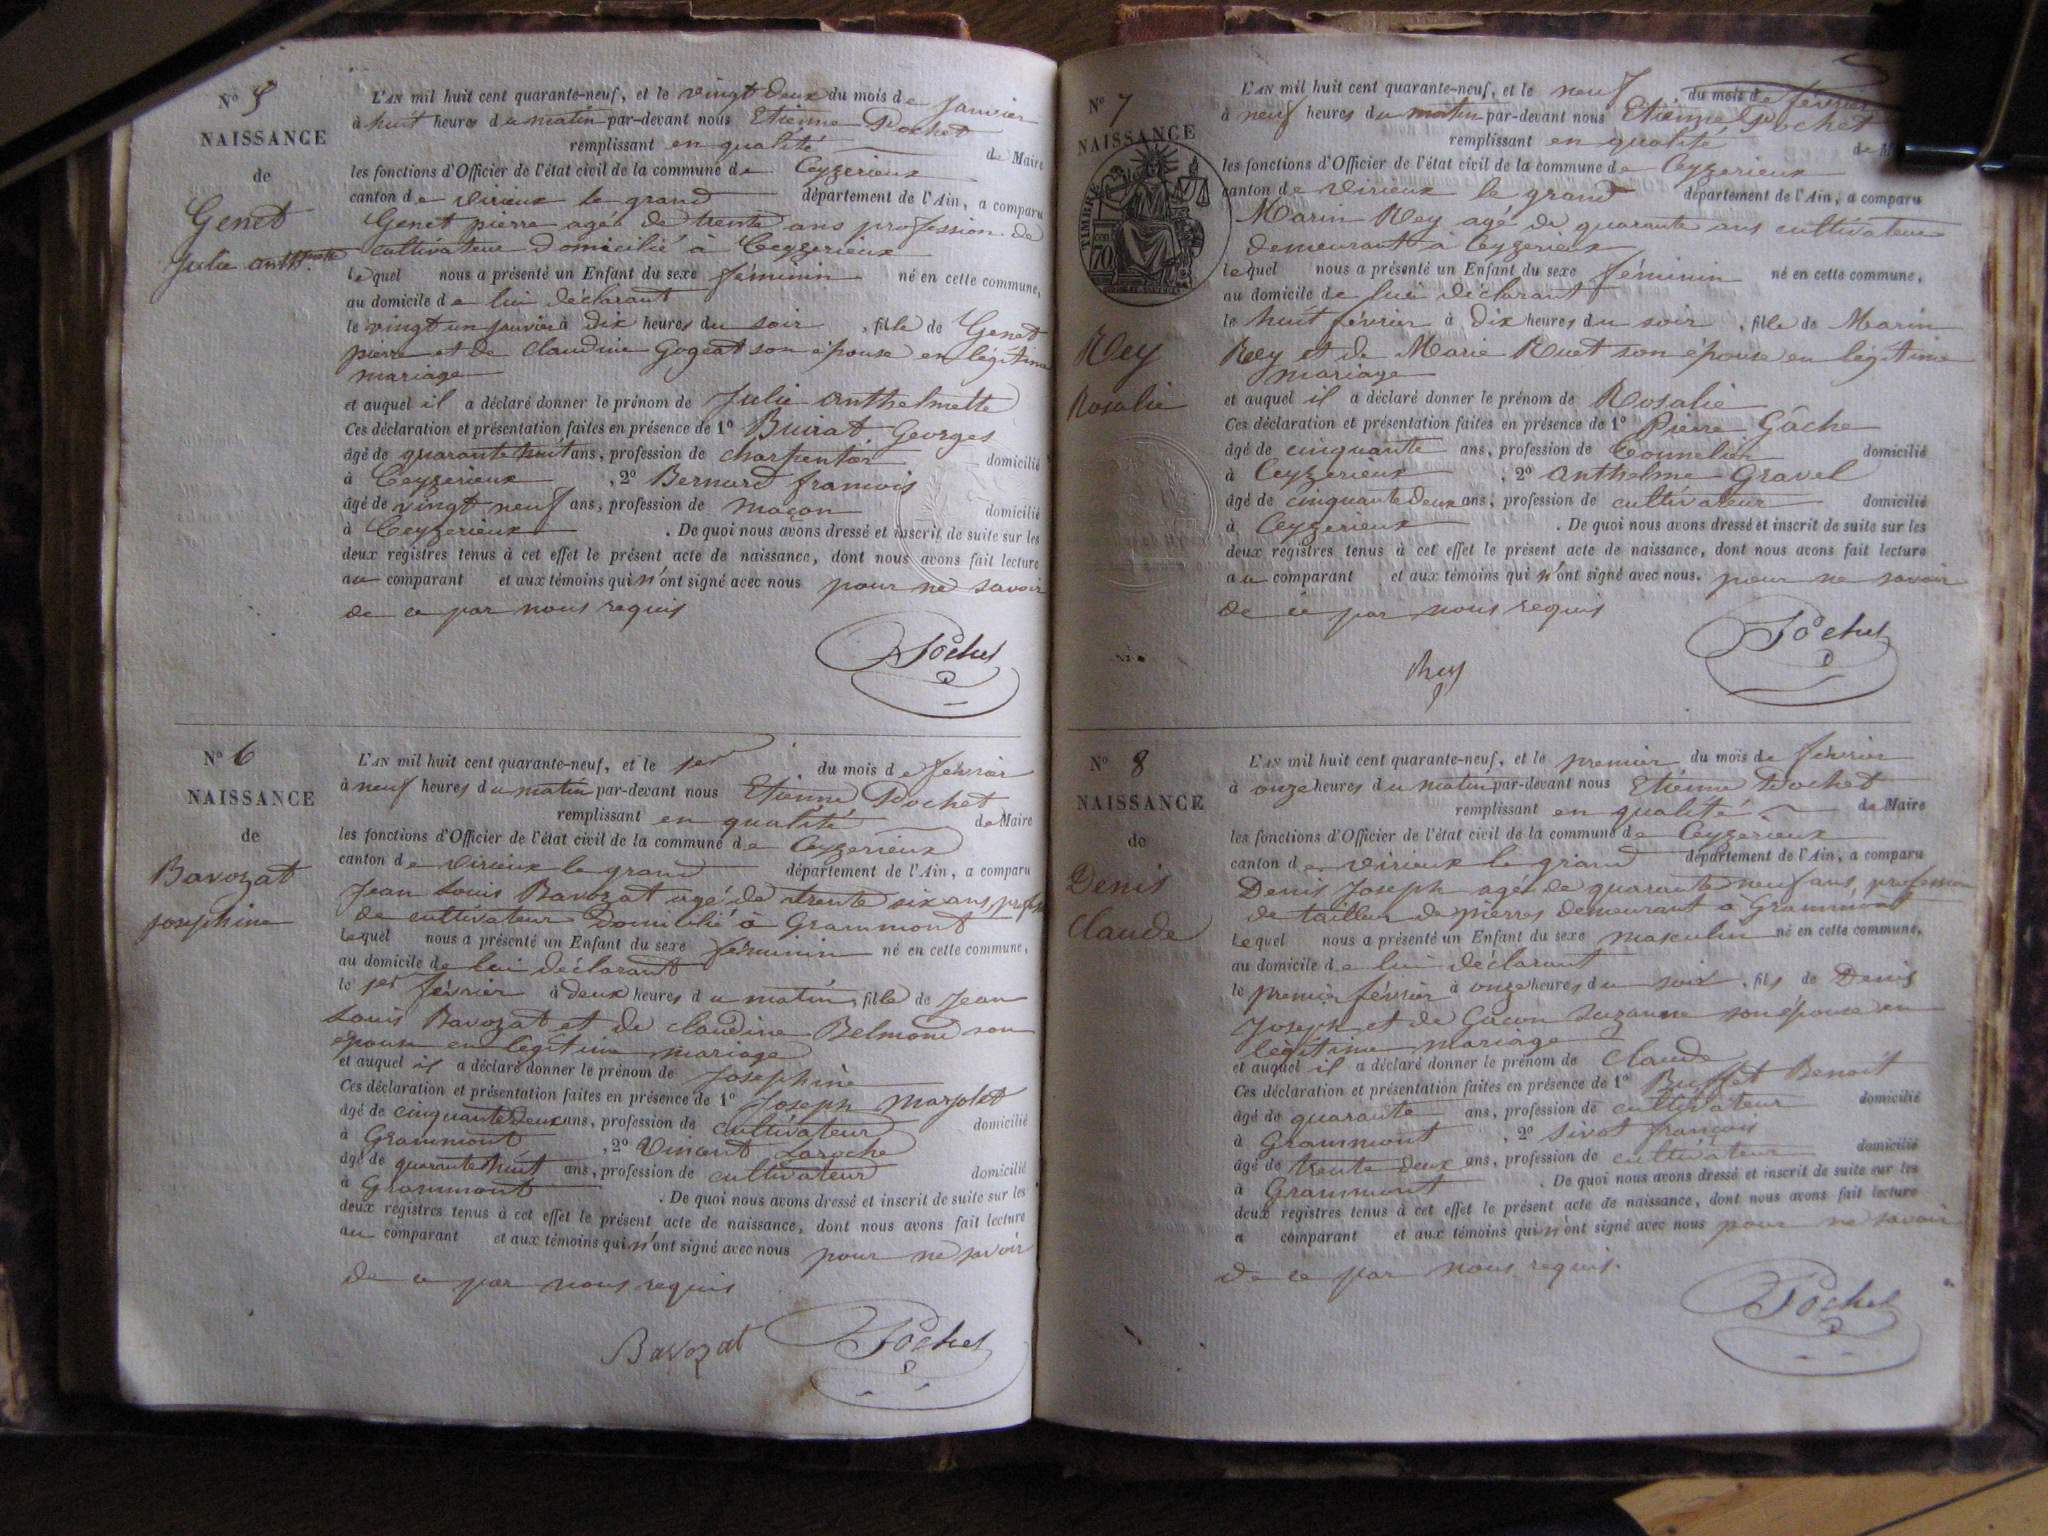 N° 5
NAISSANCE
de
Genet
Julie anth.mette
L'AN mil huit cent quarante-neuf, et le vingt deux du mois de Janvier
à huit heures du matin par-devant nous Etienne Pochet
remplissant en qualité de Maire
les fonctions d'Officier de l'état civil de la commune de Ceyzerieux
canton de virieux le grand département de l'Ain, a comparu
Genet pierre agé de trente ans profession de
cultivateur domicilié a Ceyzerieux
lequel nous a présenté un Enfant du sexe féminin né en cette commune,
au domicile de lui déclarant
le vingt un janvier à dix heures du soir, fille de Genet
pierre et de Claudine Gogeat son épouse en légitime
mariage
et auquel il a déclaré donner le prénom de Julie anthelmette
Ces déclaration et présentation faites en présence de 1° Buirat Georges
âgé de quarante huit ans, profession de charpentier domicilié
à Ceyzerieux, 2° Bernard francois
âgé de vingt neuf ans, profession de maçon domicilié
à Ceyzerieux. De quoi nous avons dressé et inscrit de suite sur les
deux registres tenus à cet effet le présent acte de naissance, dont nous avons fait lecture
au comparant et aux témoins qui n'ont signé avec nous pour ne savoir
de ce par nous requis
Pochet
N° 6
NAISSANCE
de
Bavozat
Josephine
L'AN mil huit cent quarante-neuf, et le 1er du mois de février
à neuf heures du matin par-devant nous Etienne Pochet
remplissant en qualité de Maire
les fonctions d'Officier de l'état civil de la commune de Ceyzerieux
canton de virieux le grand département de l'Ain, a comparu
Jean Louis Bavozat agé de trente six ans profession
de cultivateur Domicilié à Grammont
lequel nous a présenté un Enfant du sexe féminin né en cette commune,
au domicile de lui déclarant
le 1er février à deux heures du matin, fille de Jean
Louis Bavozat et de Claudine Belmond son
épouse en légitime mariage
et auquel il a déclaré donner le prénom de Josephine
Ces déclaration et présentation faites en présence de 1° Joseph Marjolet
âgé de cinquante deux ans, profession de cultivateur domicilié
à Grammont, 2° Vincent Laroche
âgé de quarante huit ans, profession de cultivateur domicilié
à Grammont. De quoi nous avons dressé et inscrit de suite sur les
deux registres tenus à cet effet le présent acte de naissance, dont nous avons fait lecture
au comparant et aux témoins qui n'ont signé avec nous pour ne savoir
de ce par nous requis
Bavozat Pochet
N° 7
NAISSANCE
TIMBRE
70
Rey
Rosalie
L'AN mil huit cent quarante-neuf, et le neuf du mois de février
à neuf heures du matin par-devant nous Etienne Pochet
remplissant en qualité de M
les fonctions d'Officier de l'état civil de la commune de Ceyzerieux
canton de virieux le grand département de l'Ain, a comparu
Marin Rey agé de quarante ans cultivateur
demeurant à Ceyzerieux
lequel nous a présenté un Enfant du sexe féminin né en cette commune,
au domicile de lui déclarant
le huit février à dix heures du soir, fille de Marin
Rey et de Marie Ruet son épouse en légitime
mariage
et auquel il a déclaré donner le prénom de Rosalie
Ces déclaration et présentation faites en présence de 1° Pierre Gâche
âgé de cinquante ans, profession de tonnelier domicilié
à Ceyzerieux, 2° anthelme Gravel
âgé de cinquante deux ans, profession de cultivateur domicilié
à Ceyzerieux. De quoi nous avons dressé et inscrit de suite sur les
deux registres tenus à cet effet le présent acte de naissance, dont nous avons fait lecture
au comparant et aux témoins qui n'ont signé avec nous. pour ne savoir
de ce par nous requis
Pochet
Rey
N° 8
NAISSANCE
de
Denis
Claude
L'AN mil huit cent quarante-neuf, et le premier du mois de février
à onze heures du matin par-devant nous Etienne Pochet
remplissant en qualité de Maire
les fonctions d'Officier de l'état civil de la commune de Ceyzerieux
canton de virieux le grand département de l'Ain, a comparu
Denis Joseph agé de quarante neuf ans, profession
de tailleur de pierres demeurant à Grammont
lequel nous a présenté un Enfant du sexe masculin né en cette commune,
au domicile de lui déclarant
le premier février à onze heures du soir, fils de Denis
Joseph et de Cacon Suzanne son épouse en
légitime mariage
et auquel il a déclaré donner le prénom de Claude
Ces déclaration et présentation faites en présence de 1° Buffet Benoit
âgé de quarante ans, profession de cultivateur domicilié
à Grammont, 2° Sivot françois
âgé de trente deux ans, profession de cultivateur domicilié
à Grammont. De quoi nous avons dressé et inscrit de suite sur les
deux registres tenus à cet effet le présent acte de naissance, dont nous avons fait lecture
a comparant et aux témoins qui n'ont signé avec nous pour ne savoir
de ce par nous requis.
Pochet